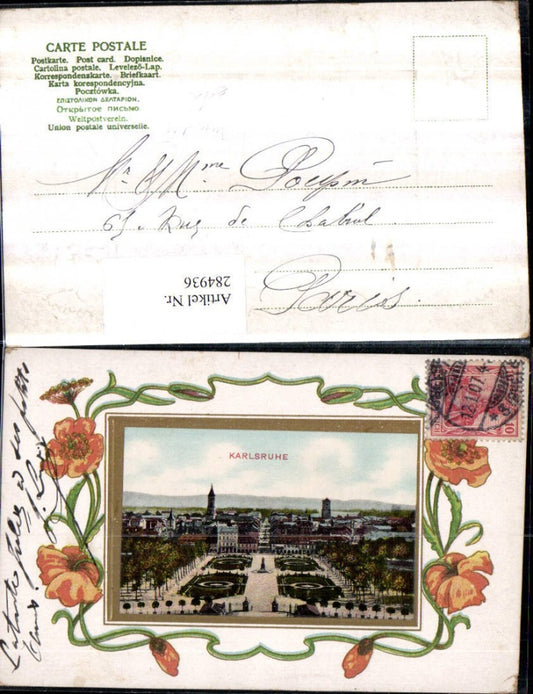 CARTE POSTALE
Postkarte. Post card. Dopisnice.
Cartolina postale. Levelező-Lap.
Korrespondenzkarte. Briefkaart.
Karta korespondencyjna.
Pocztówka.
ΕΠΙΣΤΟΛΙΚΟΝ ΔΕΛΤΑΡΙΟΝ.
Открытое письмо
Weltpostverein.
Union postale universelle.
Mr & Mme Poupin
65, Rue de Chabrol
Paris
Artikel Nr.
284936
KARLSRUHE
10
12.1.07